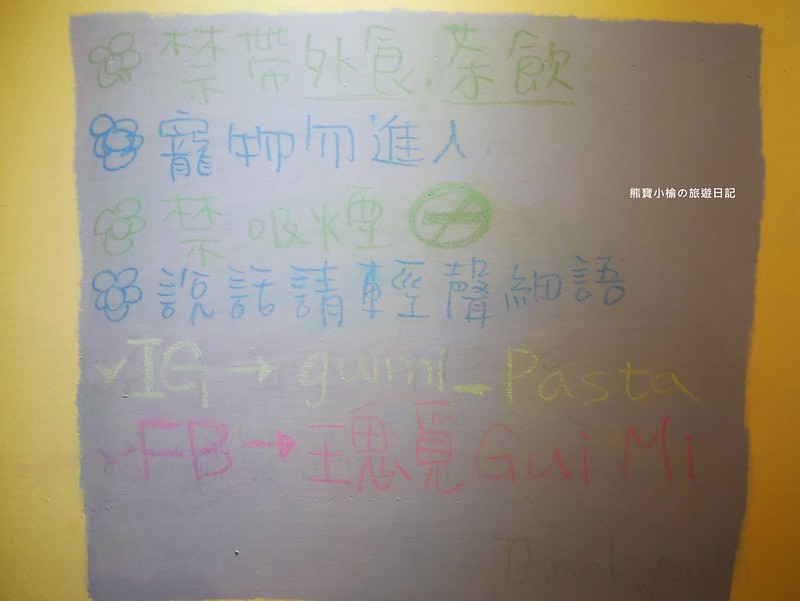 禁帶外食.茶飲
寵物勿進入
熊寶小榆の旅遊日記
禁吸煙
說話請輕聲細語
IG → guimi_Pasta
FB → 覓 Gui Mi
Thank you